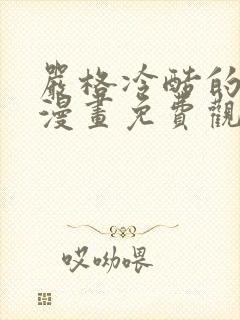 嚴格冷酷的
漫畫免費觀
哎呦喂